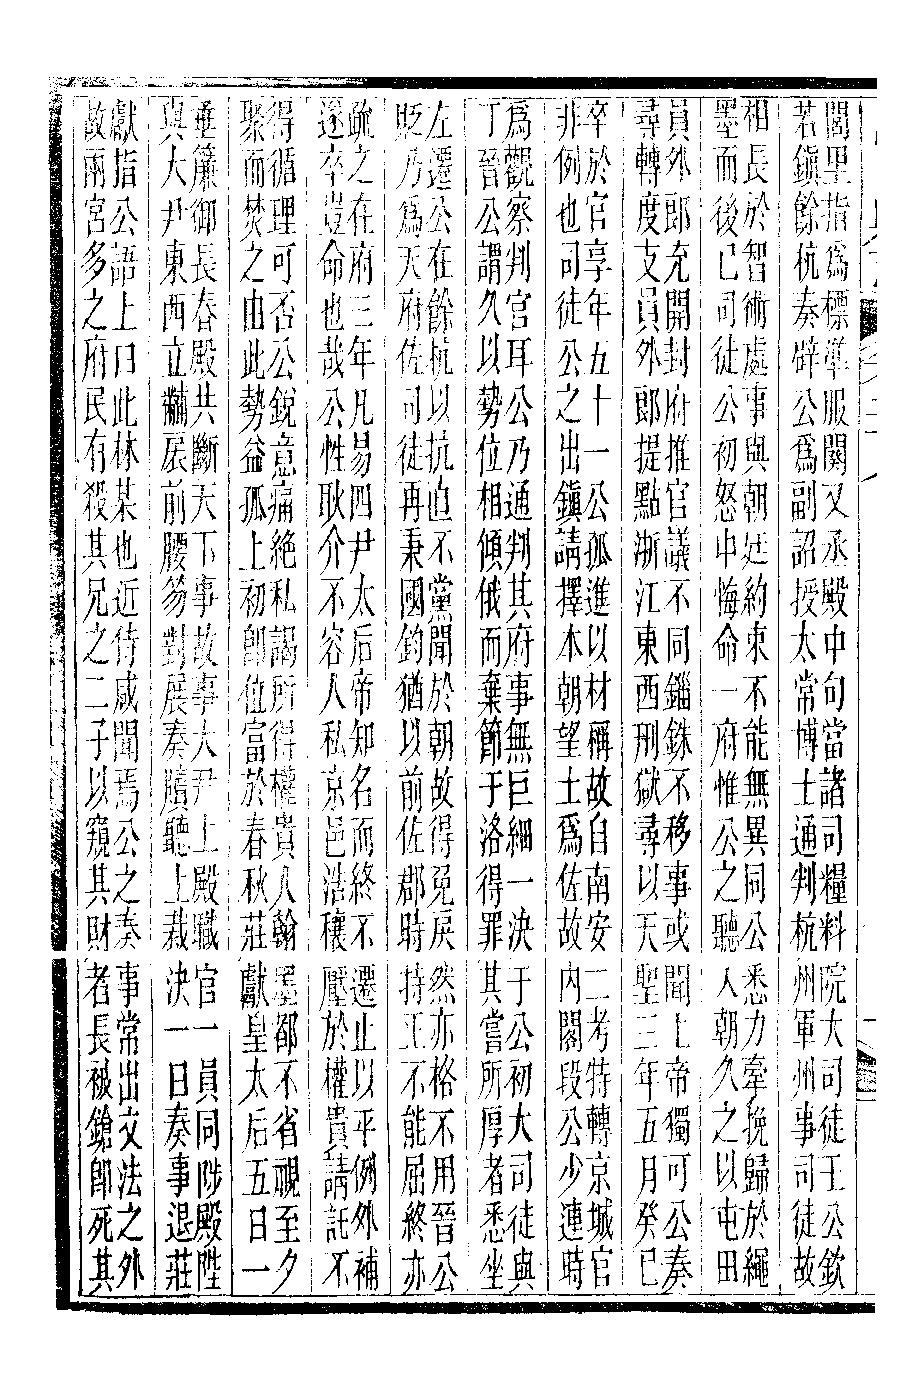 閭里指為標準服闋又丞殿中句當諸司糧料院大司徒王公欽
若鎮餘杭奏辟公為副詔授太常博士通判杭州軍州事司徒故
相長於智術處事與朝廷約束不能無異同公悉力牽挽歸於繩
墨而後已司徒公初怒中悔命一府惟公之聽入朝久之以屯田
員外郎充開封府推官議不同錙銖不移事或聞上帝獨可公奏
尋轉度支員外郎提點浙江東西刑獄尋以天聖三年五月癸巳
卒於官享年五十一公孤進以材稱故自南安二考特轉京城官
非例也司徒公之出鎮請擇本朝望士為佐故內閣段公少連時
為觀察判官耳公乃通判其府事無巨細一決于公初大司徒與
丁晉公謂久以勢位相傾俄而棄節于洛得罪其嘗所厚者悉坐
左遷公在餘杭以抗直不黨聞於朝故得免戾然亦格不用晉公
貶乃為天府佐司徒再秉國鈞猶以前佐郡時持正不能屈終亦
疏之在府三年凡易四尹太后帝知名而終不遷止以平例外補
遂卒豈命也哉公性耿介不容人私京邑浩穰壓於權貴請託不
得循理可否公銳意痛絕私謁所得權貴人翰墨都不省覗至夕
聚而焚之由此勢益孤上初卽位富於春秋莊獻皇太后五日一
垂簾御長春殿共斷天下事故事大尹上殿職官一員同陟殿陛
與大尹東西立黼扆前腰笏對展奏牘聽上裁決一日奏事退莊
獻指公語上曰此林某也近侍咸聞焉公之奏事常出文法之外
故兩宮多之府民有殺其兄之二子以窺其財者長被鎗卽死其